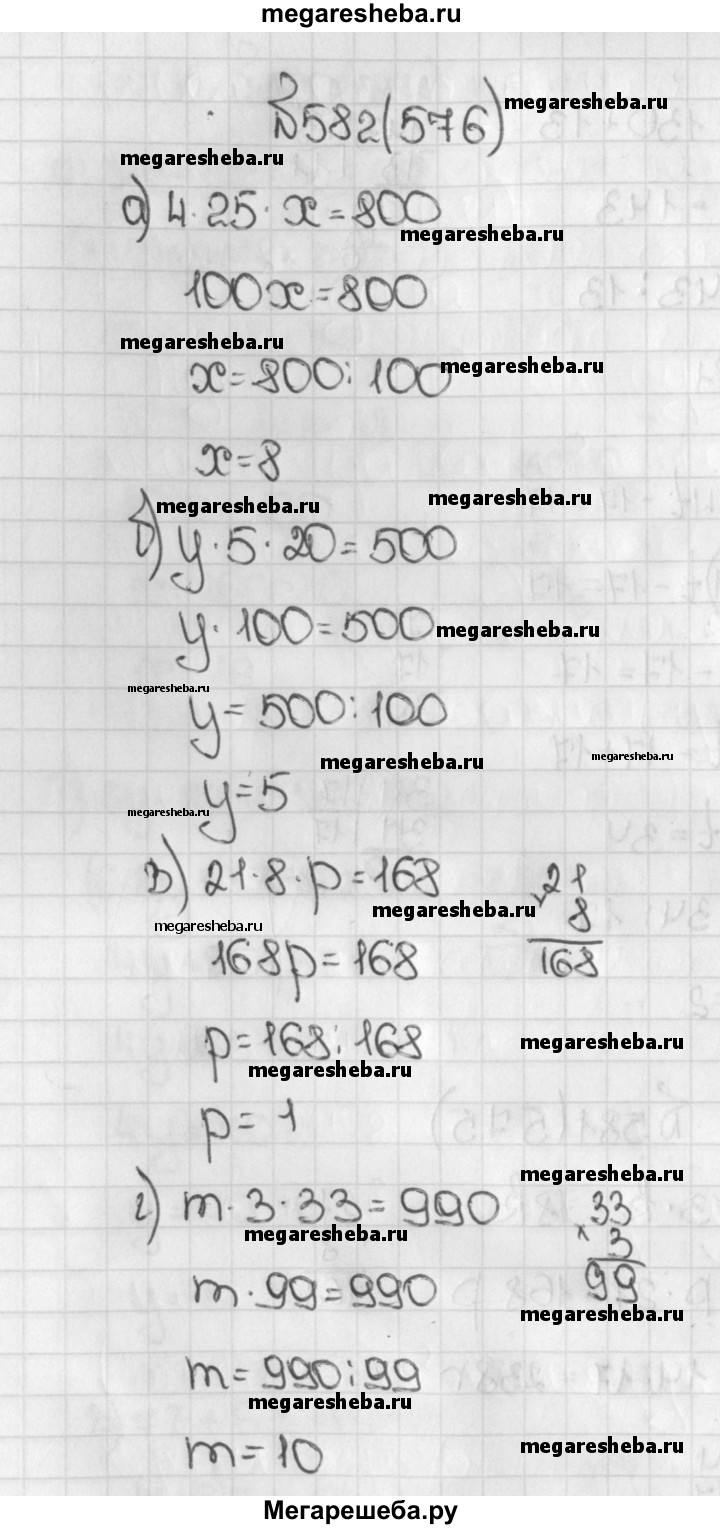 megaresheba.ru
№582(576)
megaresheba.ru
megaresheba.ru
а) 4·25·x=800
megaresheba.ru
100x=800
megaresheba.ru
x=800:100
megaresheba.ru
x=8
megaresheba.ru
megaresheba.ru
б) y·5·20=500
y·100=500
megaresheba.ru
megaresheba.ru
y=500:100
megaresheba.ru
megaresheba.ru
y=5
megaresheba.ru
в) 21·8·p=168
21
× 8
168
megaresheba.ru
megaresheba.ru
168p=168
p=168:168
megaresheba.ru
megaresheba.ru
p=1
megaresheba.ru
г) m·3·33=990
33
× 3
99
megaresheba.ru
m·99=990
megaresheba.ru
m=990:99
megaresheba.ru
m=10
megaresheba.ru
Мегарешеба.ру